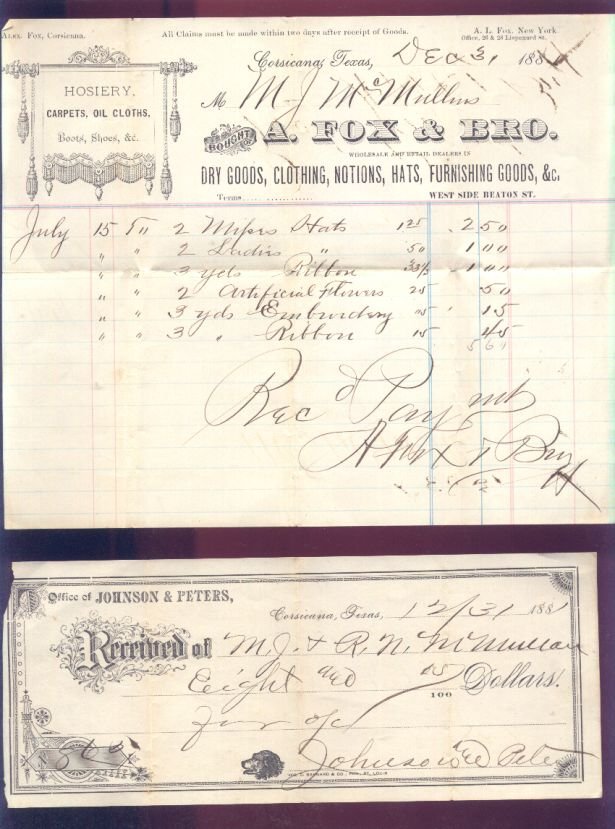 Alex. Fox, Corsicana. All Claims must be made within two days after receipt of Goods. A. L. Fox, New York
Office, 26 & 28 Lispenard st.
Corsicana, Texas, Dec 31 188
HOSIERY,
CARPETS, OIL CLOTHS,
Boots, Shoes, &c.
M M J McMullins
BOUGHT OF A. FOX & BRO.
WHOLESALE AND RETAIL DEALERS IN
DRY GOODS, CLOTHING, NOTIONS, HATS, FURNISHING GOODS, &c.
Terms WEST SIDE BEATON ST.
July 15 To 2 Misses Hats 1 25 2 50
" " 2 Ladies " 50 1 00
" " 3 yds Ribbon 33⅓ 1 00
" " 2 Artificial Flowers 25 50
" " 3 yds Embroidery 05 15
" " 3 " Ribbon 15 45
Rec'd Paymt
A Fox & Bro
H
Office of JOHNSON & PETERS,
Corsicana, Texas, 12/31 1881
Received of M. J. & R. N. McMullan
Eight and 05/100 Dollars.
Johnson and Peters
$